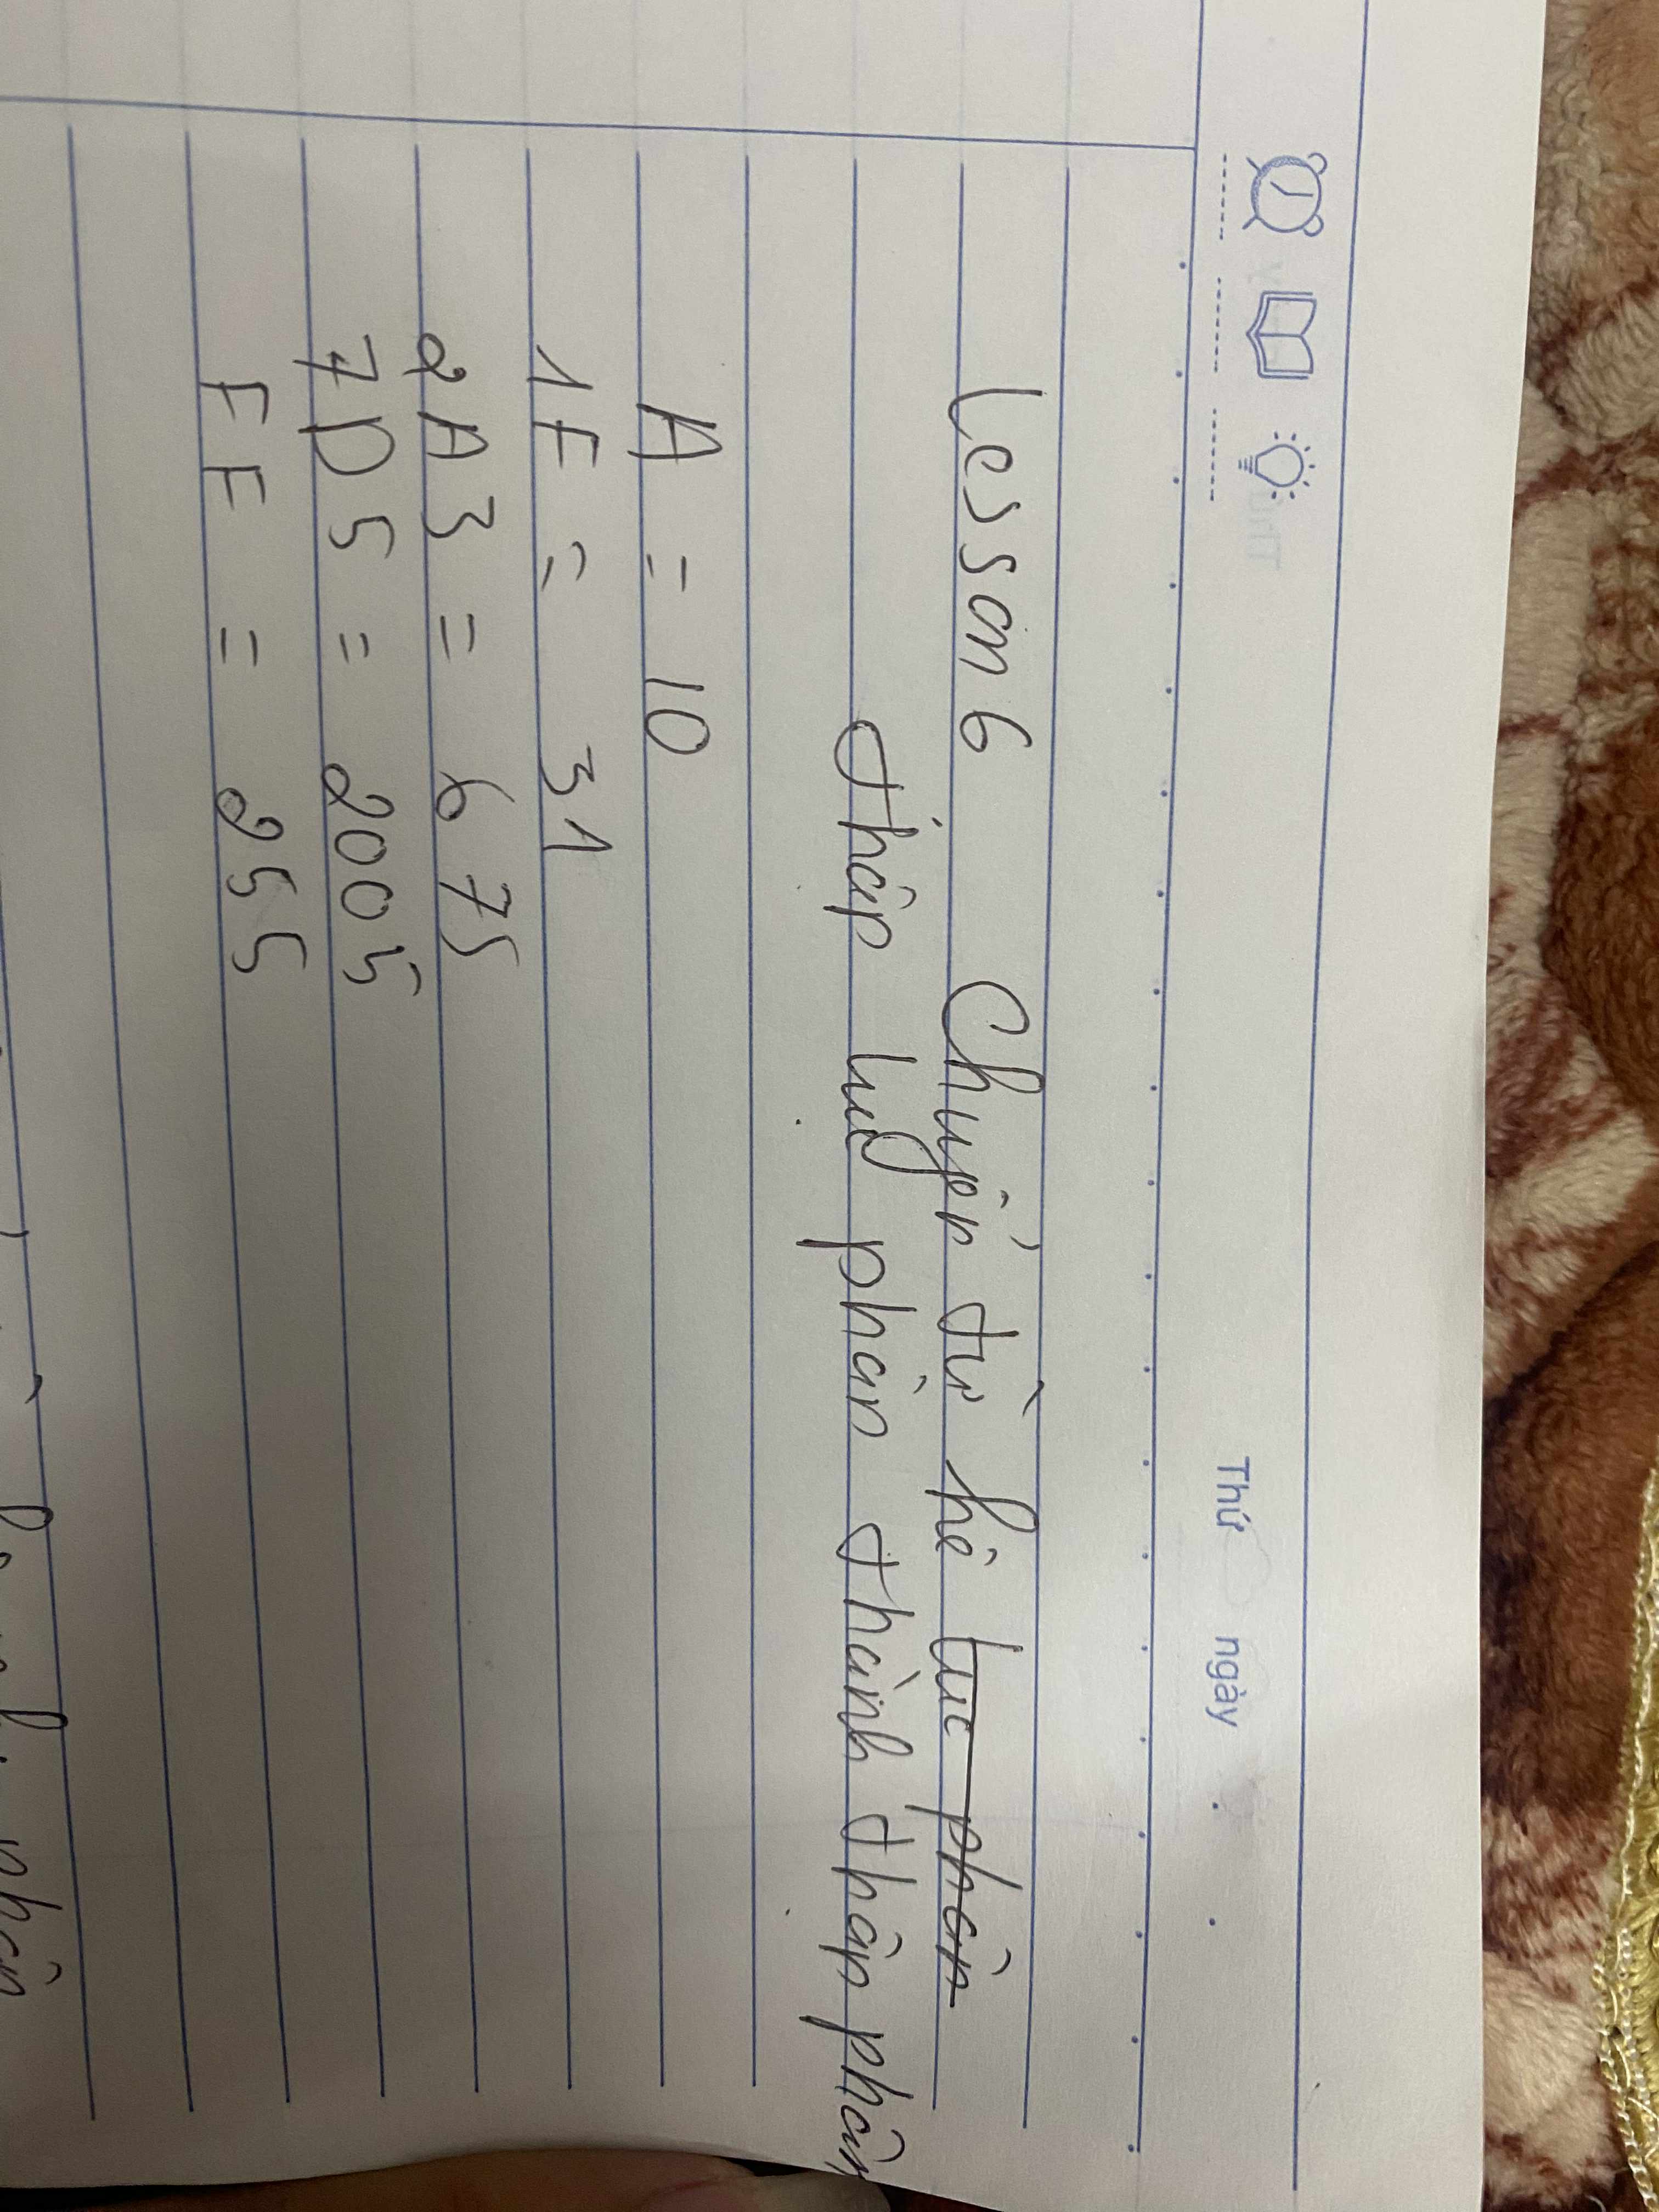 Thứ ngày
Lesson 6 Chuyển từ hệ lục phân
thập lục phân thành thập phân
A = 10
1F = 31
2A3 = 675
7D5 = 2005
FF = 255
phân